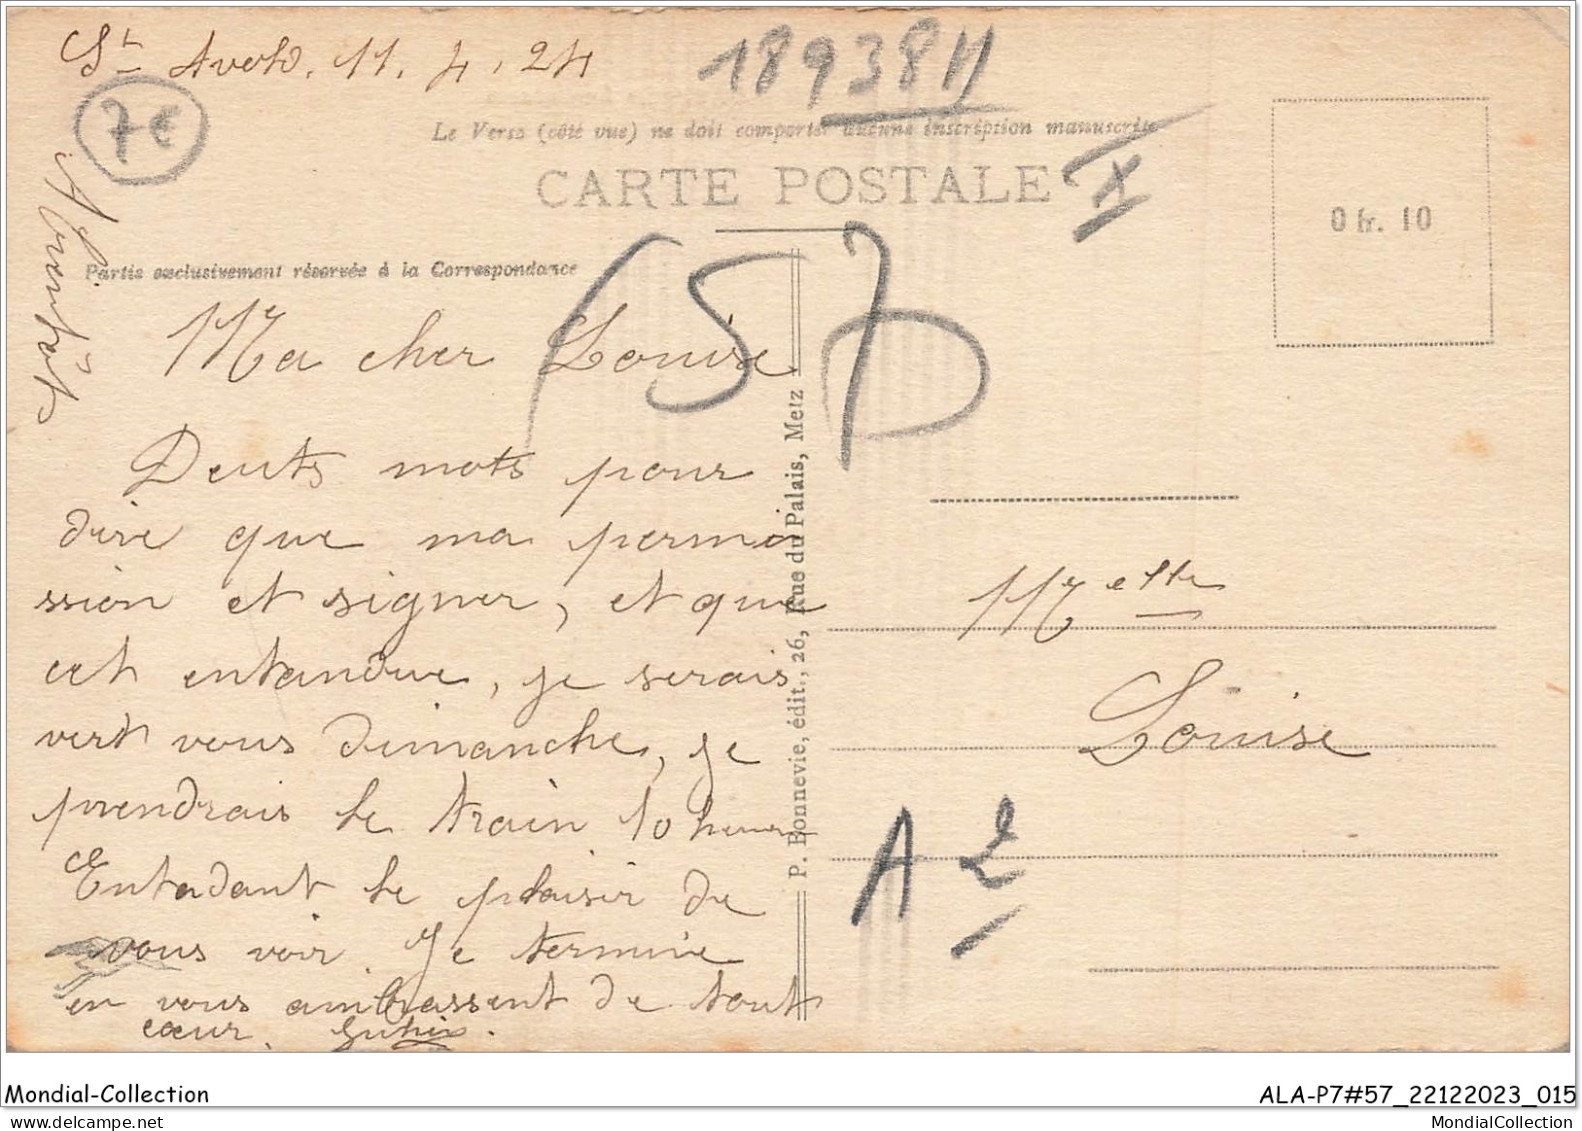 St Avold. 11. 4. 24
18938H
7€
Le Verso (côté vue) ne doit comporter aucune inscription manuscrite
CARTE POSTALE
X
0 fr. 10
A bientôt
Partie exclusivement réservée à la Correspondance
(57)
Ma cher Louise
Deuts mots pour
dire que ma permi
ssion et signer, et que
cet entandue, je serais
vert vous dimanche, je
prendrais le train 10 heures
Entadant le plaisir de
vous voir. Je termine
en vous ambrassent de tout
cœur.
P. Bonnevie, édit., 26, Rue du Palais, Metz
Melle
Louise
A 2
Mondial-Collection
ALA-P7#57_22122023_015
MondialCollection